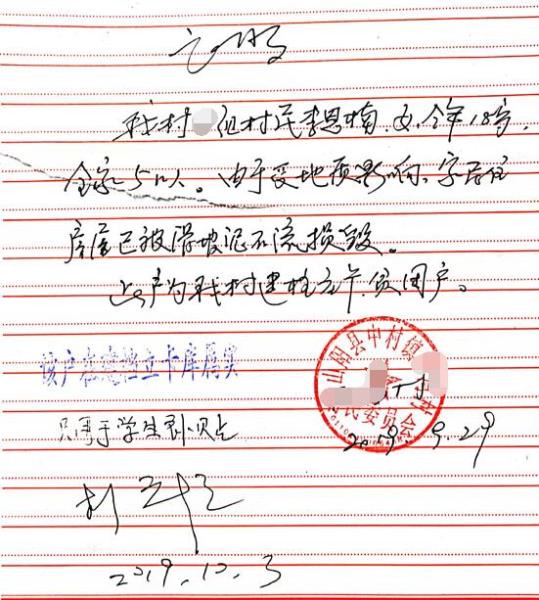 证明
我村 组村民李思楠，女，今年18岁，
全家5口人。由于受地质影响，家居住
房屋已被滑坡泥石流损毁。
该户为我村建档立卡贫困户。
该户在建档立卡库属实
山阳县中村镇
村民委员会
2019.9.29
只用于学生
2019.10.3